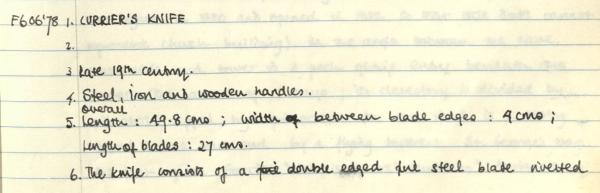 F606'78 1. CURRIER'S KNIFE
2.
3 Late 19th century.
4. Steel, iron and wooden handles.
overall
5. Length : 49.8 cms ; width of between blade edges : 4 cms ;
Length of blades : 27 cms.
6. The knife consists of a double edged steel blade rivetted